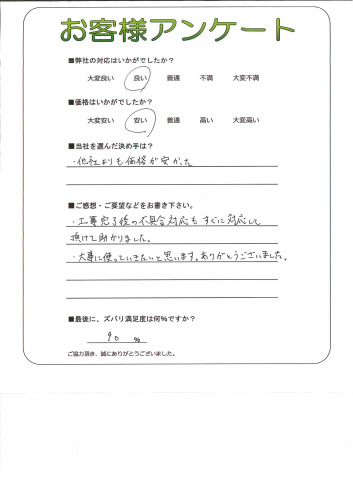 お客様アンケート
■弊社の対応はいかがでしたか?
大変良い 良い 普通 不満 大変不満
■価格はいかがでしたか?
大変安い 安い 普通 高い 大変高い
■当社を選んだ決め手は?
・他社よりも価格が安かった
■ご感想・ご要望などをお書き下さい。
・工事完了後の不具合対応もすぐに対応して
頂けて助かりました。
・大事に使っていきたいと思います。ありがとうございました。
■最後に、ズバリ満足度は何%ですか?
90 %
ご協力頂き、誠にありがとうございました。